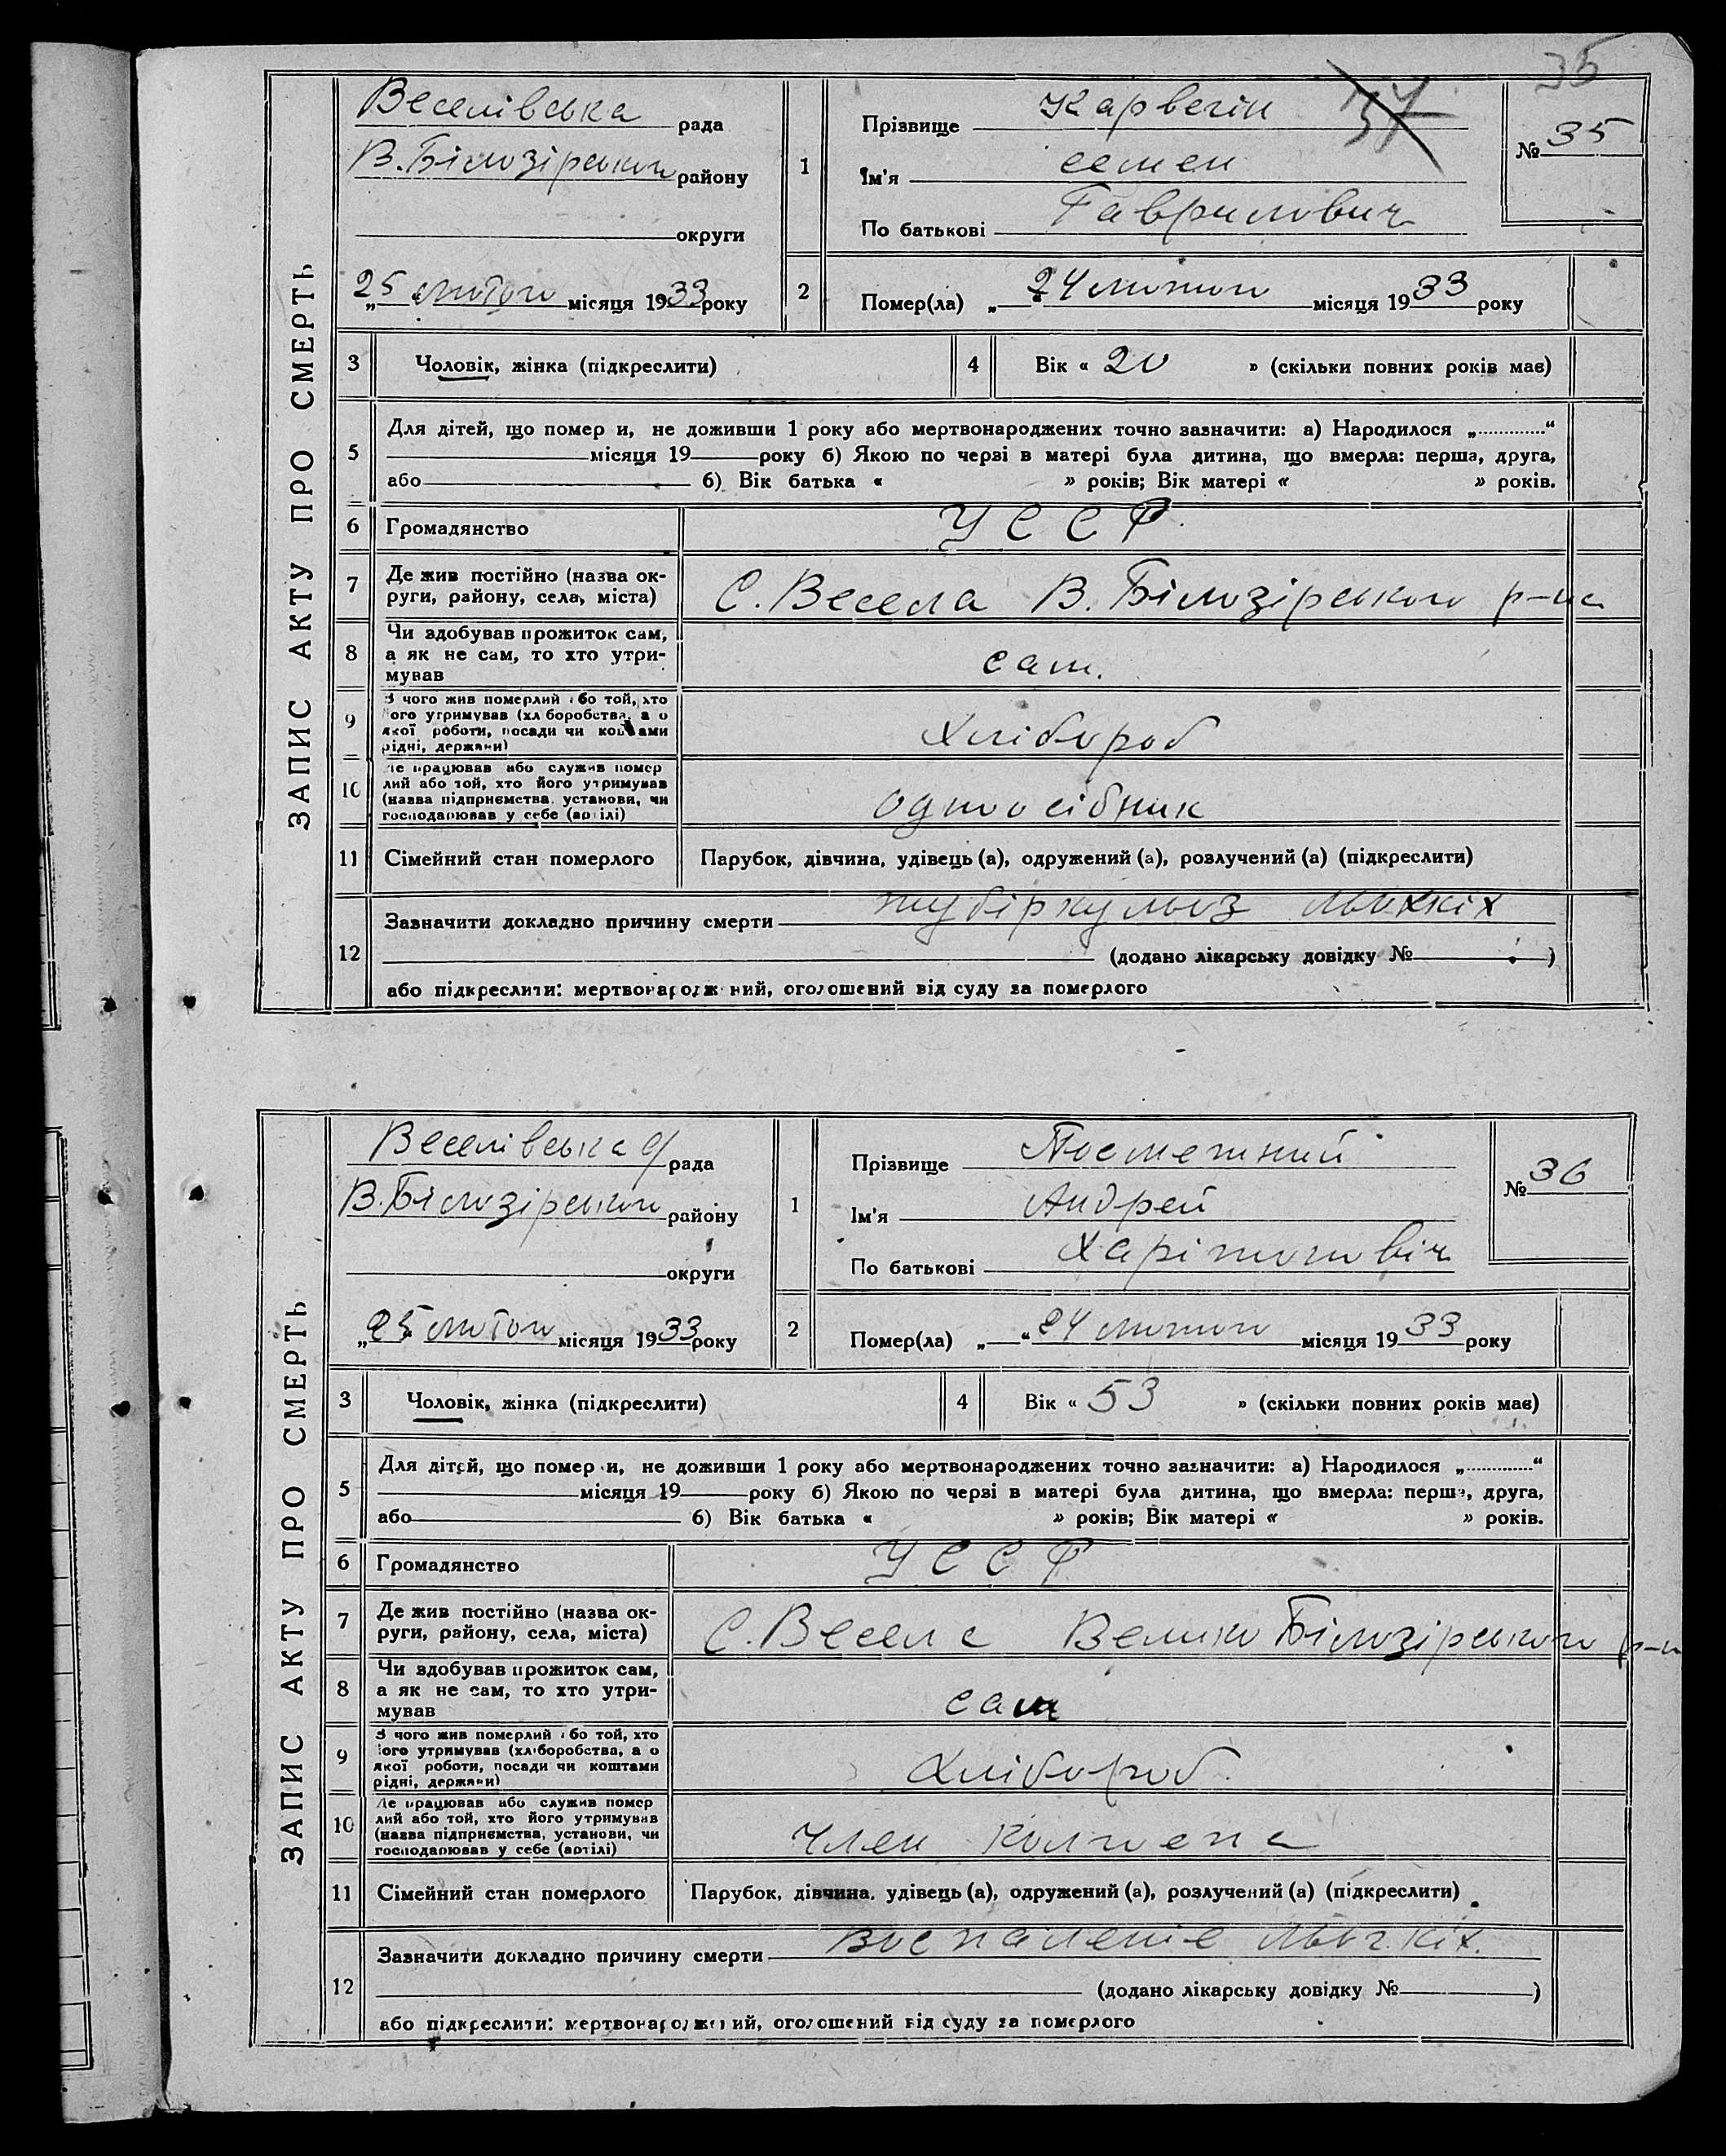 35
ЗАПИС АКТУ ПРО СМЕРТЬ
Веселівська рада
В.Білозірського району
округи
„25 лютого місяця 1933 року
1
Прізвище Карвегін
Ім'я семен
По батькові Гаврилович
№ 35
2
Помер(ла) „24 лютого місяця 1933 року
3 Чоловік, жінка (підкреслити)
4 Вік « 20 » (скільки повних років має)
5 Для дітей, що помер и, не доживши 1 року або мертвонароджених точно зазначити: а) Народилося „............“
місяця 19 року б) Якою по черзі в матері була дитина, що вмерла: перша, друга,
або б) Вік батька « » років; Вік матері « » років.
6 Громадянство УССР
7 Де жив постійно (назва ок-
руги, району, села, міста) С. Весела В. Білозірського р-на
8 Чи здобував прожиток сам,
а як не сам, то хто утри-
мував сам.
9 З чого жив померлий або той, хто
його утримував (хліборобства, а о
якої роботи, посади чи коштами
рідні, держави) Хлібороб
10 Де працював або служив помер
лий або той, хто його утримував
(назва підприємства, установи, чи
господарював у себе (артілі) одноосібник
11 Сімейний стан померлого Парубок, дівчина, удівець (а), одружений (а), розлучений (а) (підкреслити)
12 Зазначити докладно причину смерти тубіркульоз льохкіх
(додано лікарську довідку № )
або підкреслити: мертвонароджений, оголошений від суду за померлого
ЗАПИС АКТУ ПРО СМЕРТЬ
Веселівська с/рада
В.Білозірського району
округи
„25 лютого місяця 1933 року
1
Прізвище
Ім'я Андрей
По батькові Харітоновіч
№ 36
2
Помер(ла) „ “ 24 лютого місяця 1933 року
3 Чоловік, жінка (підкреслити)
4 Вік « 53 » (скільки повних років має)
5 Для дітей, що помер и, не доживши 1 року або мертвонароджених точно зазначити: а) Народилося „............“
місяця 19 року б) Якою по черзі в матері була дитина, що вмерла: перша, друга,
або б) Вік батька « » років; Вік матері « » років.
6 Громадянство УССР
7 Де жив постійно (назва ок-
руги, району, села, міста) С. Весела Велико Білозірського р-н
8 Чи здобував прожиток сам,
а як не сам, то хто утри-
мував сам
9 З чого жив померлий або той, хто
його утримував (хліборобства, а о
якої роботи, посади чи коштами
рідні, держави) Хлібороб.
10 Де працював або служив помер
лий або той, хто його утримував
(назва підприємства, установи, чи
господарював у себе (артілі) Член колгоспа
11 Сімейний стан померлого Парубок, дівчина, удівець (а), одружений (а), розлучений (а) (підкреслити)
12 Зазначити докладно причину смерти воспаленіе льогкіх.
(додано лікарську довідку № )
або підкреслити: мертвонароджений, оголошений від суду за померлого